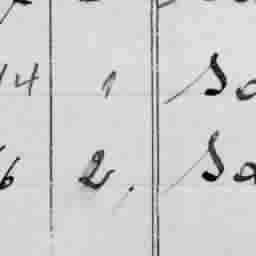 14 1 Sa
6 2. Sa